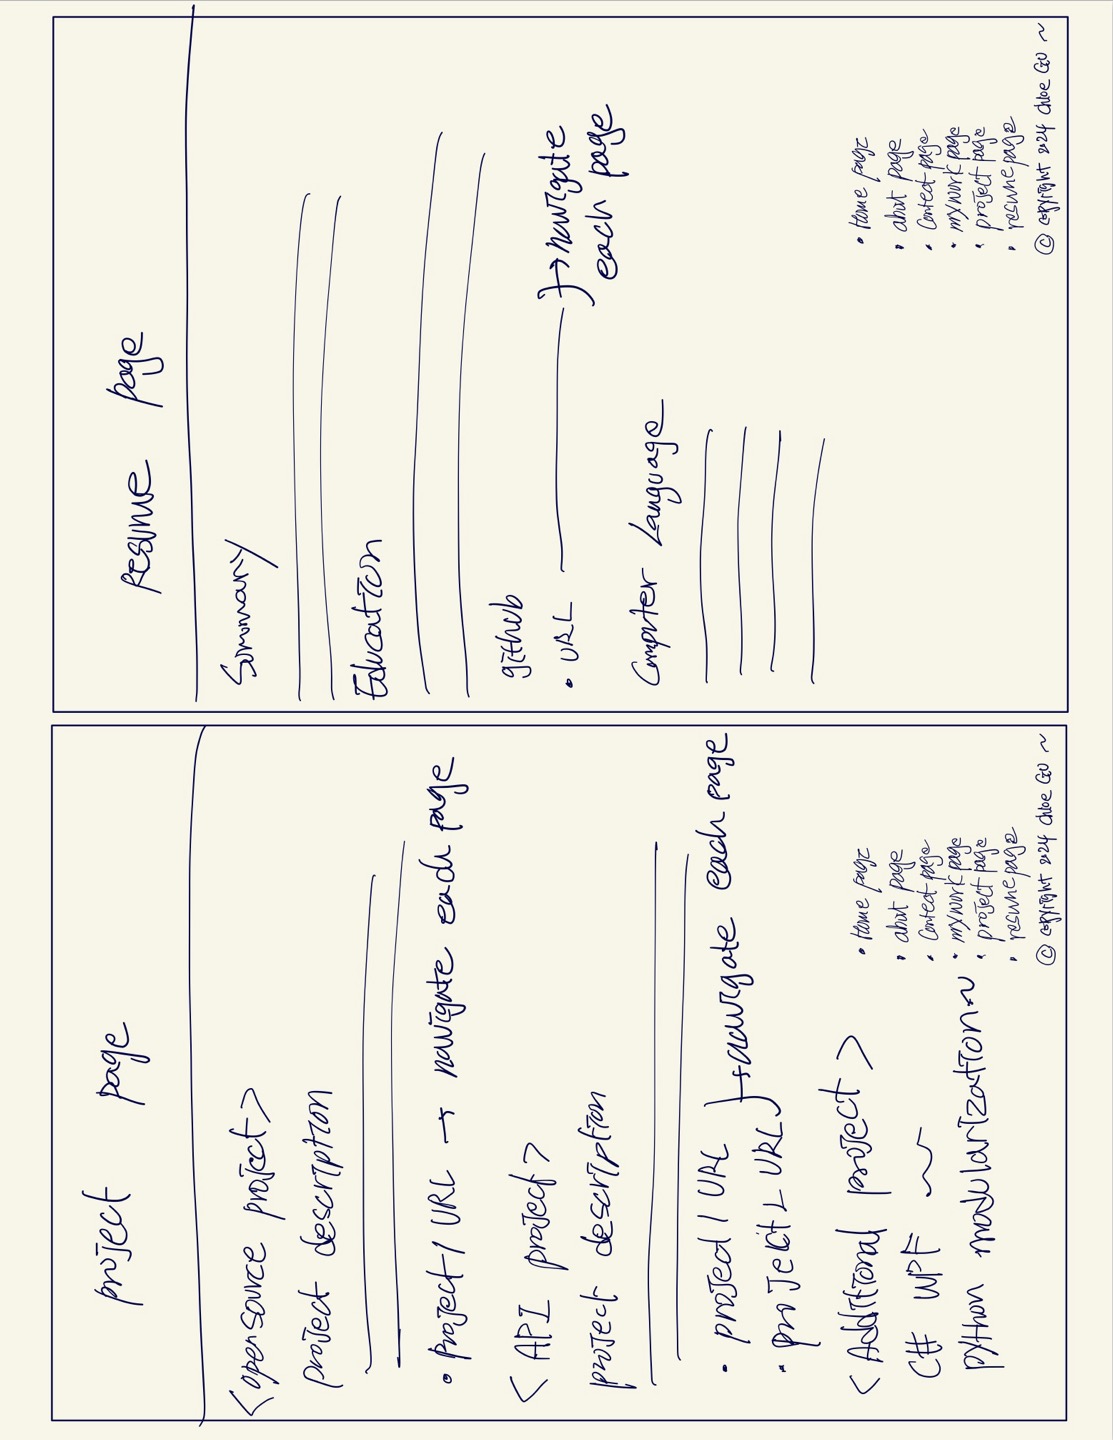 project page
<opensource project>
project description
• Project 1 URL → navigate each page
< API project >
project description
• project 1 URL
• project 2 URL
→ navigate each page
< Additional project >
C# WPF ~
python modularization ~
• Home page
• about page
• Contact page
• my work page
• project page
• resume page
© copyright 2024 Chloe GU ~
Resume page
Summary
Education
github
• URL
→ navigate
each page
Computer Language
• Home page
• about page
• Contact page
• my work page
• project page
• resume page
© copyright 2024 Chloe GU ~